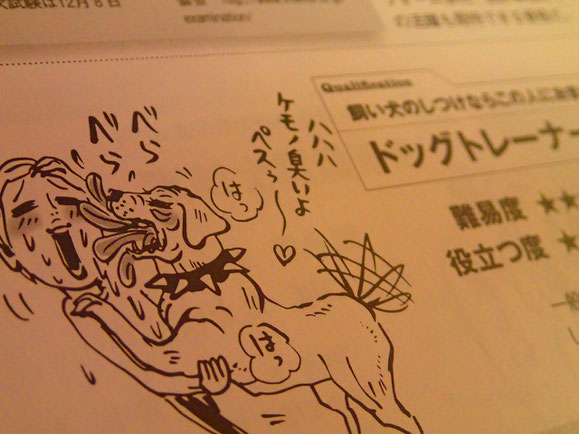 試験は12月8日
examination/
Qualification
飼い犬のしつけならこの人に
ドッグトレーナー
難易度 ★★
役立つ度 ★
ハハハ
ケモノ臭いよ
ペスぅ〜♡
べら
べら
はっ
はっ